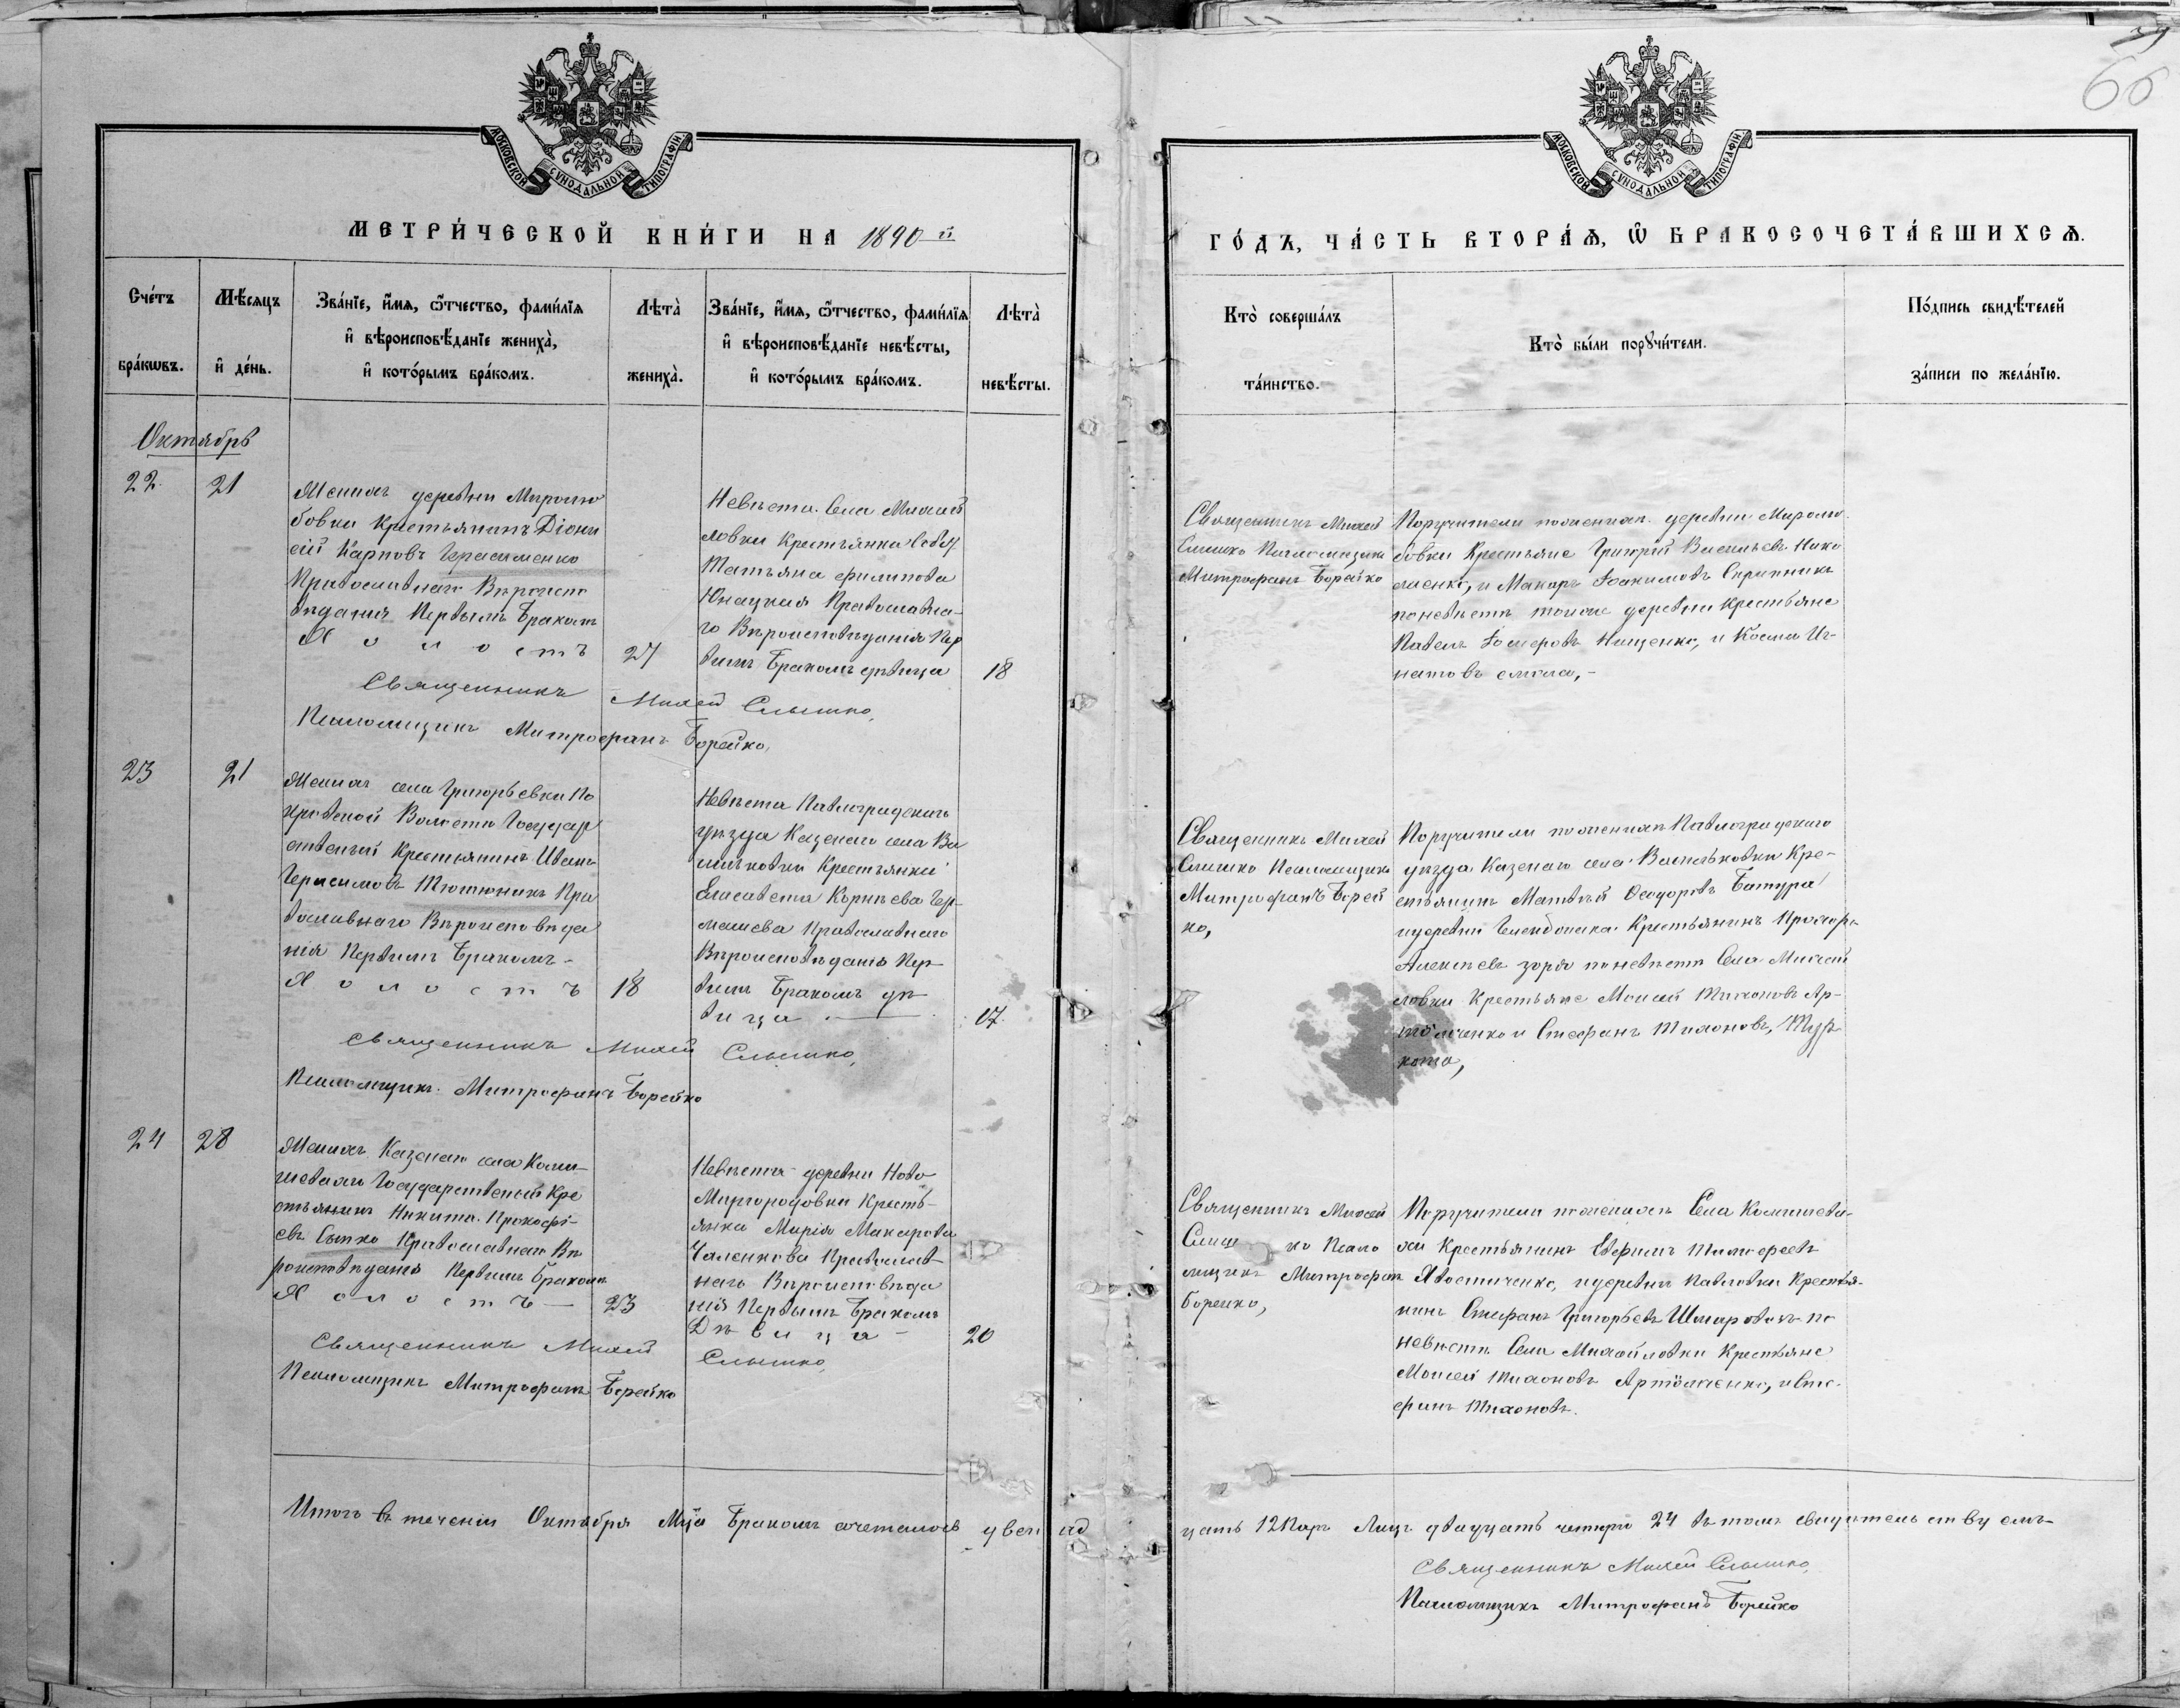 66
МОСКОВСКОЙ СУНОДАЛЬНОЙ ТИПОГРАФІИ
МОСКОВСКОЙ СУНОДАЛЬНОЙ ТИПОГРАФІИ
МЕТРИ́ЧЕСКОЙ КНИ́ГИ НА 1890 й
ГО́ДЪ, ЧА́СТЬ ВТОРА́Ѧ, Ѽ БРАКОСОЧЕТА́ВШИХСѦ.
Сче́тъ
бра́кѡвъ.
Мѣ́сяцъ
и҆ де́нь.
Зва́нїе, и҆́мя, ѻ҆́тчество, фами́лїя
и҆ вѣроисповѣ́данїе жениха̀,
и҆ кото́рымъ бра́комъ.
Лѣта̀
жениха̀.
Зва́нїе, и҆́мя, ѻ҆́тчество, фами́лїя
и҆ вѣроисповѣ́данїе невѣ́сты,
и҆ кото́рымъ бра́комъ.
Лѣта̀
невѣ́сты.
Кто̀ соверша́лъ
та́инство.
Кто̀ бы́ли порꙋчи́тели.
По́дпись свидѣ́телей
за́писи по жела́нїю.
Октябрь
22.
21
Женихъ деревни Миролю
бовки Крестьянинъ Діони
сій Карповъ Герасименко
Православнаго Вѣроиспо
вѣданія Первымъ Бракомъ
Холостъ
27
Невѣста Села Михай
ловки Крестьянка
Татьяна Филипова
Юнацкая Православна-
го Вѣроисповѣданія Пер
вымъ Бракомъ дѣвица
18
Священникъ Михей
Слишко Псаломщикъ
Митрофанъ Борейко
Поручители поженихѣ деревни Миролю
бовки Крестьяне Григорій Васильевъ Нико
лаенко, и Макаръ Іоакимовъ Скрипникъ
поневѣстѣ тойже деревни Крестьяне
Павелъ Нищенко, и Косма Иг-
натовъ
Священникъ Михей Слышко,
Псаломщикъ Митрофанъ Борейко,
23
21
Женихъ села Григорьевки По
кровской Волости Государ
ственый Крестьянинъ Иванъ
Герасимовъ Тютюникъ Пра
вославнаго Вѣроисповѣда
нія Первымъ Бракомъ-
Холостъ
18
Невѣста Павлоградскаго
уѣзда Казенаго села Ва
сильковки Крестьянка
Елисавета Корнѣева Чер-
машева Православнаго
Вѣроисповѣданія Пер
вымъ Бракомъ дѣ
вица
17.
Священникъ Михей
Слишко Псаломщикъ
Митрофанъ Борей
ко,
Поручители поженихѣ Павлоградскаго
уѣзда Казенаго села Васильковки Кре-
стьянинъ Матвѣй Ѳеодоровъ Батура
идеревни Крестьянинъ Прохоръ
Алексѣевъ Зоря поневѣстѣ Села Михай
ловки Крестьяне Моисей Тихоновъ Ар-
тюменко и Стефанъ Тихоновъ, Тур
кота,
Священникъ Михей Слышко,
Псаломщикъ Митрофанъ Борейко
24
28
Женихъ Казенаго села Комы-
шевахи Государственый Кре
стьянинъ Никита Прокофі-
евъ Сытко Православнаго Вѣ
роисповѣданія Первымъ Бракомъ
Холостъ
23
Невѣста деревни Ново
Миргородовки Кресть-
янка Марія Макарова
Чаленкова Православ
наго Вѣроисповѣда
нія Первымъ Бракомъ
Дѣвица -
20
Священникъ Михей
Слиш ко Псало
мщикъ Митрофанъ
Борейко,
Поручители поженихѣ Села Комышева-
хи Крестьянинъ Евфимъ Тимофеевъ
Хвостиченко, идеревни Павловки Крестья-
нинъ Стефанъ Григорьевъ по
невѣстѣ Села Михайловки Крестьяне
Моисей Тихоновъ Артюменко, иСте-
фанъ Тихоновъ.
Священникъ Михей Слышко,
Псаломщикъ Митрофанъ Борейко
Итогъ въ теченіи Октября Мца Бракомъ сочеталось двенад цать 12 Паръ Лицъ двадцать четыре 24 въ томъ свидѣтельствуемъ
Священникъ Михей Слышко,
Псаломщикъ Митрофанъ Борейко